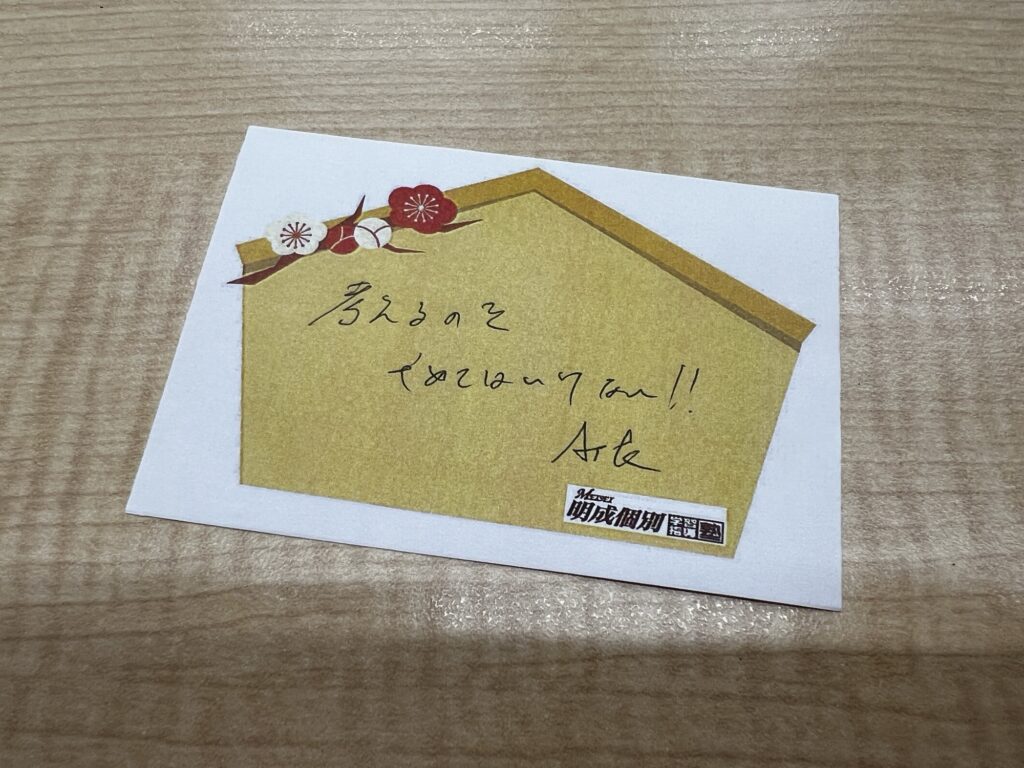 考えるのを
やめてはいけない!!
Meisei
明成個別
塾